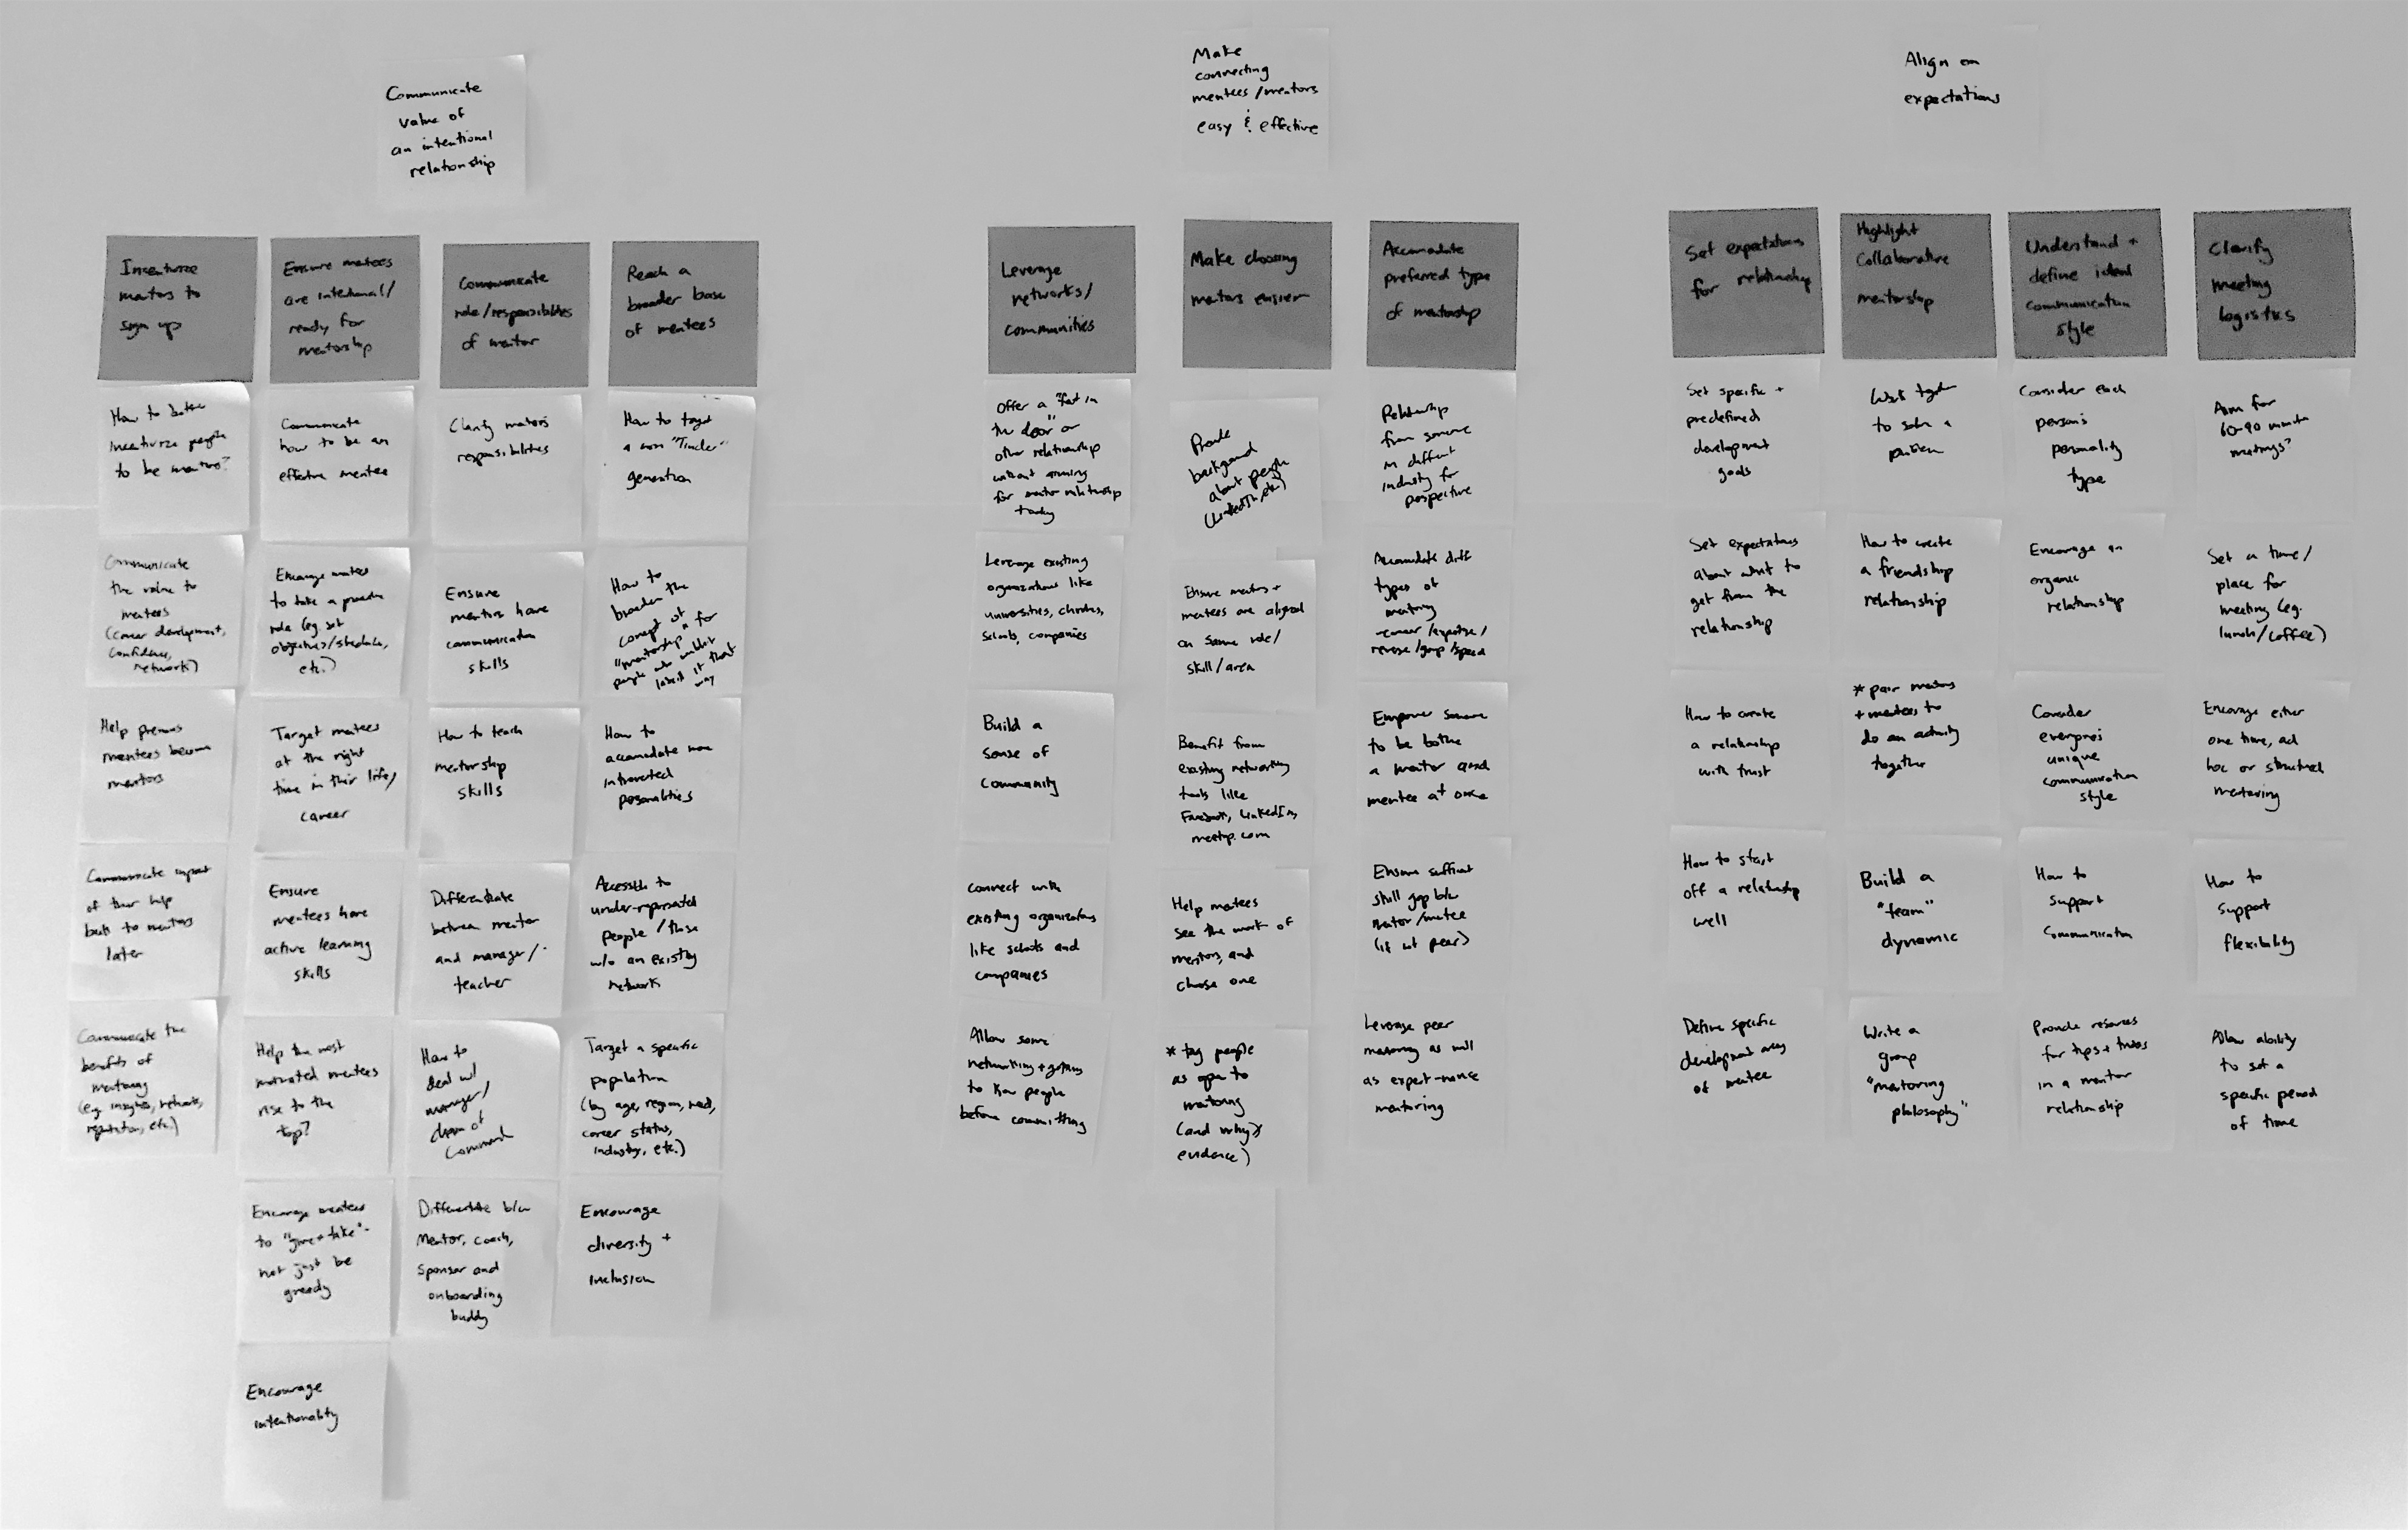 Communicate
value of
an intentional
relationship
Incentivize
mentors to
sign up
How to better
incentivize people
to be mentors?
Communicate
the value to
mentees
(career development,
confidence,
network)
Help previous
mentees become
mentors
Communicate impact
of their help
back to mentors
later
Communicate the
benefits of
mentoring
(eg. insights, network,
reputation, etc.)
Ensure mentees
are intentional/
ready for
mentorship
Communicate
how to be an
effective mentee
Encourage mentees
to take a proactive
role (eg. set
objectives/schedule,
etc.)
Target mentees
at the right
time in their life/
career
Ensure
mentees have
active learning
skills
Help the most
motivated mentees
rise to the
top?
Encourage mentees
to "give + take" -
not just be
greedy
Encourage
intentionality
Communicate
role/responsibilities
of mentor
Clarify mentors
responsibilities
Ensure
mentors have
communication
skills
How to teach
mentorship
skills
Differentiate
between mentor
and manager/
teacher
How to
deal w/
manager/
chain of
command
Differentiate b/w
Mentor, coach,
sponsor and
onboarding
buddy
Reach a
broader base
of mentees
How to target
a non "Tinder"
generation
How to
broaden the
concept of
"mentorship" for
people who wouldn't
label it that
way
How to
accomadate more
introverted
personalities
Accessible to
under-represented
people / those
w/o an existing
network
Target a specific
population
(by age, region, need,
career status,
industry, etc.)
Encourage
diversity +
inclusion
Make
connecting
mentees/mentors
easy & effective
Leverage
networks/
communities
Offer a "foot in
the door" or
other relationship
without aiming
for mentor relationship
today
Leverage existing
organizations like
universities, churches,
schools, companies
Build a
sense of
community
connect with
existing organizations
like schools and
companies
Allow some
networking + getting
to know people
before committing
Make choosing
mentors easier
Provide
background
about people
(LinkedIn, etc.)
Ensure mentors +
mentees are aligned
on same role/
skill/area
Benefit from
existing networking
tools like
Facebook, LinkedIn,
meetup.com
Help mentees
see the work of
mentors, and
choose one
* tag people
as open to
mentoring
(and why
evidence)
Accomadate
preferred type
of mentorship
Relationship
from someone
in different
industry for
perspective
Accomadate diff
types of
mentoring
-career/expertise/
reverse/group/speed
Empower someone
to be both
a mentor and
mentee at once
Ensure sufficient
skill gap b/w
mentor/mentee
(if not peer)
Leverage peer
mentoring as well
as expert-novice
mentoring
Align on
expectations
Set expectations
for relationship
Set specific +
predefined
development
goals
Set expectations
about what to
get from the
relationship
How to create
a relationship
with trust
How to start
off a relationship
well
Define specific
development areas
of mentee
Highlight
Collaborative
mentorship
Work together
to solve a
problem
How to create
a friendship
relationship
* pair mentors
+ mentees to
do an activity
together
Build a
"team"
dynamic
Write a
group
"mentoring
philosophy"
Understand +
define ideal
communication
style
Consider each
person's
personality
type
Encourage an
organic
relationship
Consider
everyone's
unique
communication
style
How to
support
communication
Provide resources
for tips + tricks
in a mentor
relationship
Clarify
meeting
logistics
Aim for
60-90 minute
meetings?
Set a time/
place for
meeting (eg.
lunch/coffee)
Encourage either
one time, ad
hoc or structured
mentoring
How to
support
flexibility
Allow ability
to set a
specific period
of time